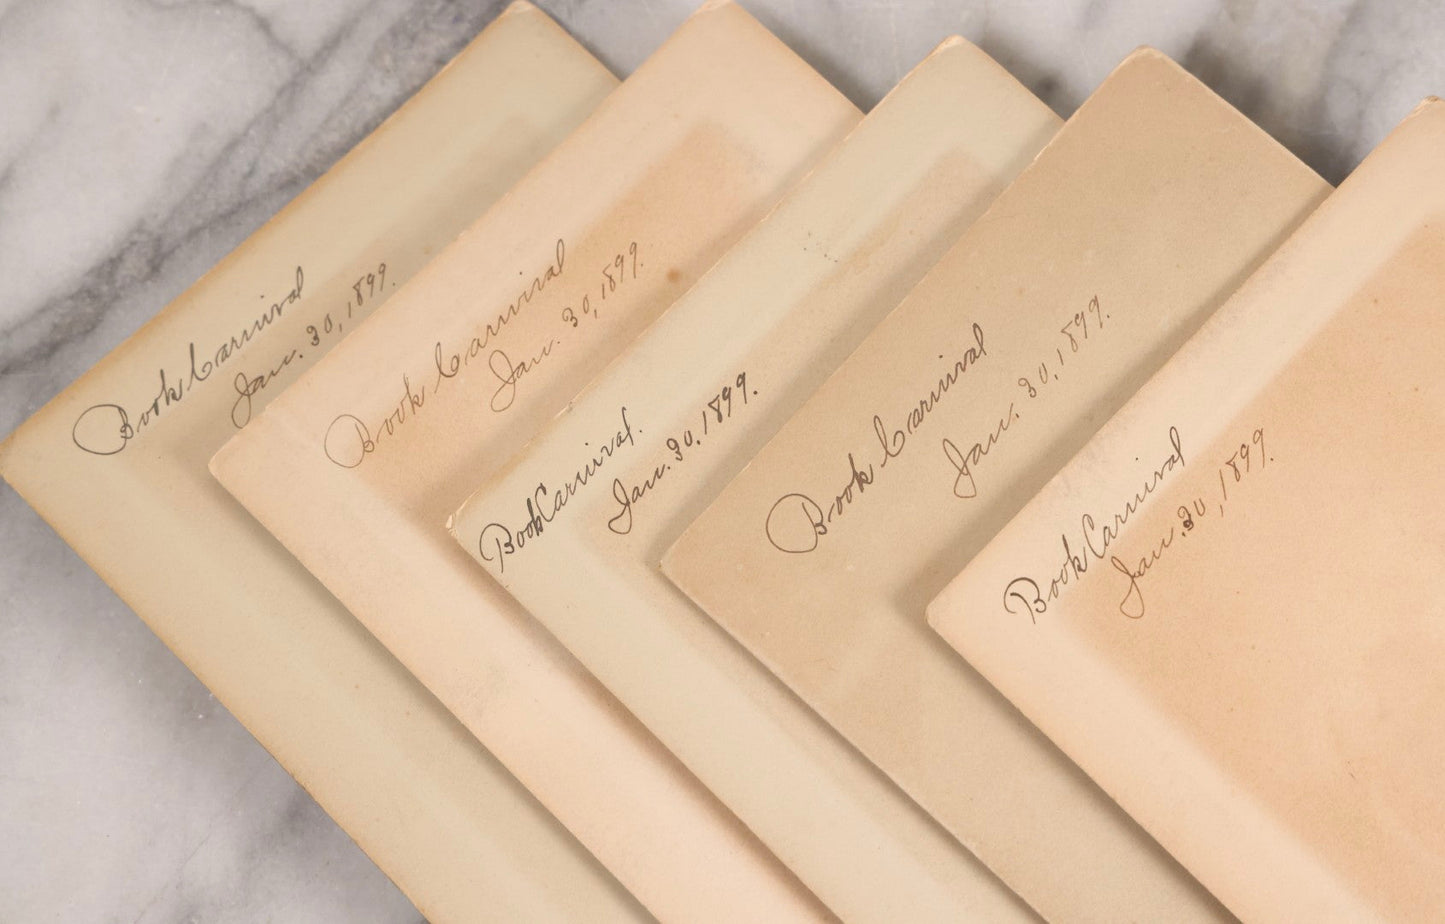 Book Carnival
Jan. 30, 1899.
Book Carnival
Jan. 30, 1899.
Book Carnival.
Jan. 30. 1899.
Book Carnival
Jan. 30, 1899.
Book Carnival
Jan. 30, 1899.